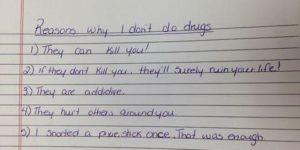 Reasons why I don't do drugs
1) They can kill you!
2) If they dont kill you, they'll surely ruin your life!
3) They are addictive.
4) They hurt others around you.
5) I snorted a pixie stick once. That was enough.